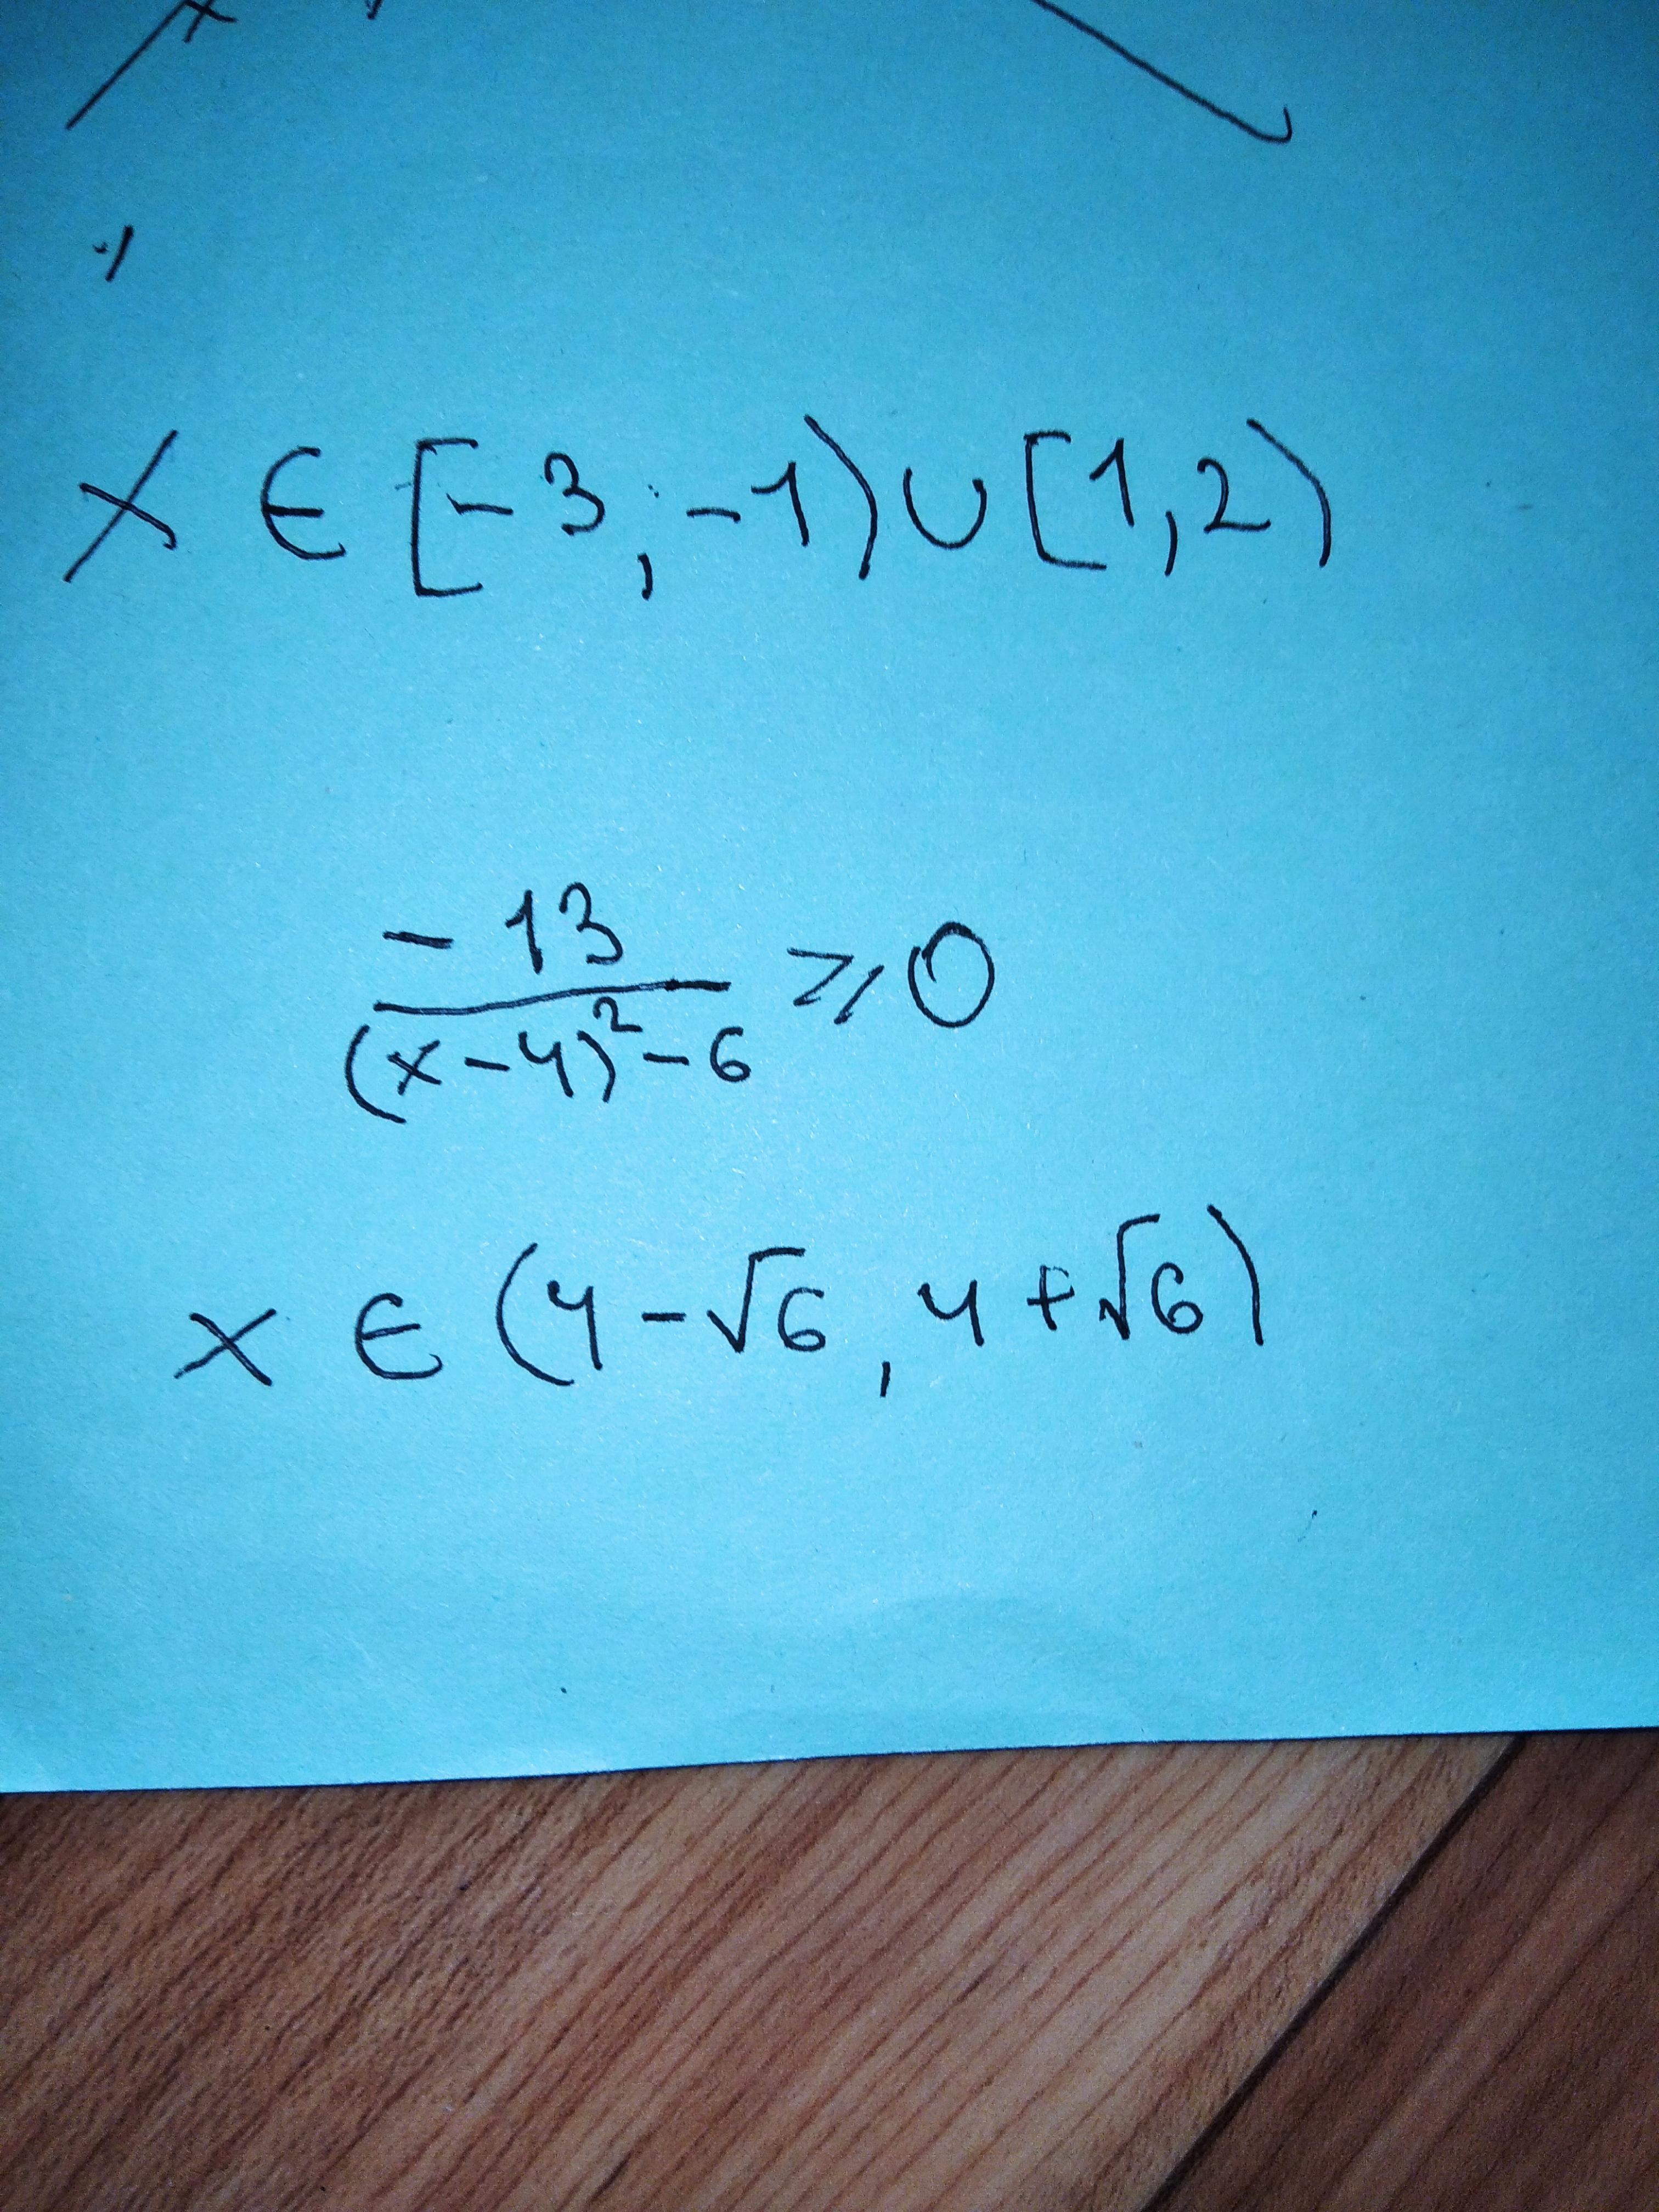 x ∈ [-3, -1) ∪ [1, 2)
-13 / ((x-4)² - 6) ⩾ 0
x ∈ (4-√6, 4+√6)